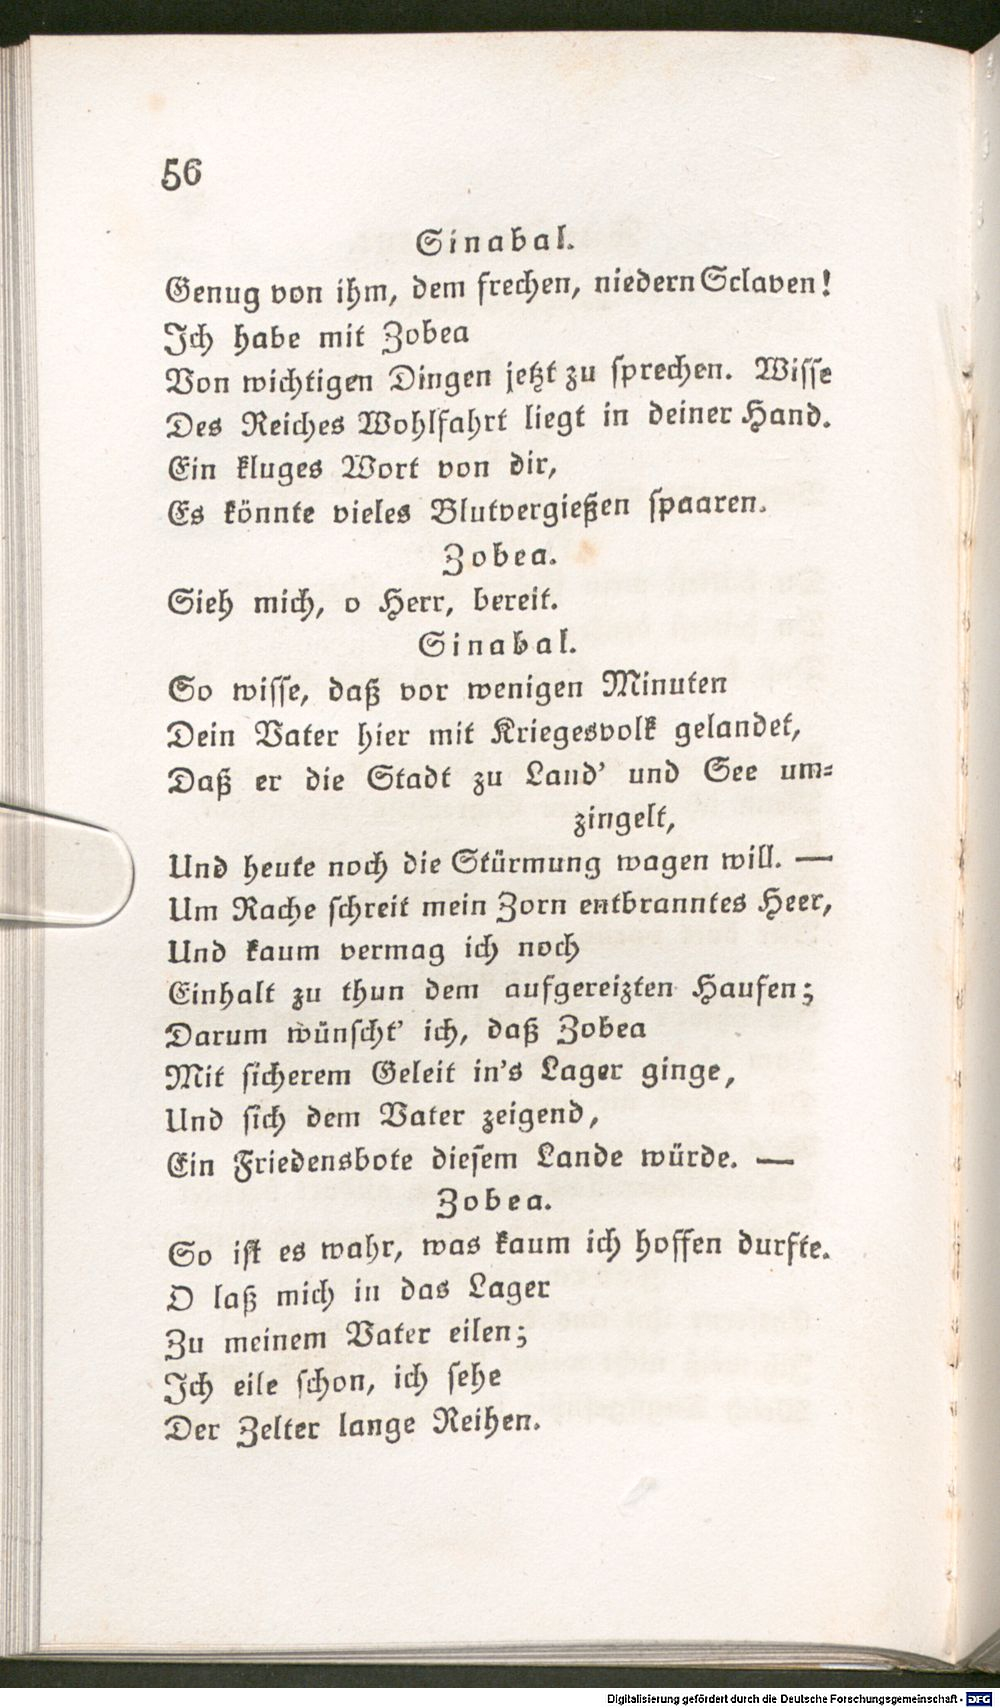 56
Sinabal.
Genug von ihm, dem frechen, niedern Sclaven!
Ich habe mit Zobea
Von wichtigen Dingen jetzt zu sprechen. Wisse
Des Reiches Wohlfahrt liegt in deiner Hand.
Ein kluges Wort von dir,
Es könnte vieles Blutvergießen spaaren.
Zobea.
Sieh mich, o Herr, bereit.
Sinabal.
So wisse, daß vor wenigen Minuten
Dein Vater hier mit Kriegesvolk gelandet,
Daß er die Stadt zu Land' und See um-
zingelt,
Und heute noch die Stürmung wagen will. —
Um Rache schreit mein Zorn entbranntes Heer,
Und kaum vermag ich noch
Einhalt zu thun dem aufgereizten Haufen;
Darum wünscht' ich, daß Zobea
Mit sicherem Geleit in's Lager ginge,
Und sich dem Vater zeigend,
Ein Friedensbote diesem Lande würde. —
Zobea.
So ist es wahr, was kaum ich hoffen durfte.
O laß mich in das Lager
Zu meinem Vater eilen;
Ich eile schon, ich sehe
Der Zelter lange Reihen.
Digitalisierung gefördert durch die Deutsche Forschungsgemeinschaft - DFG